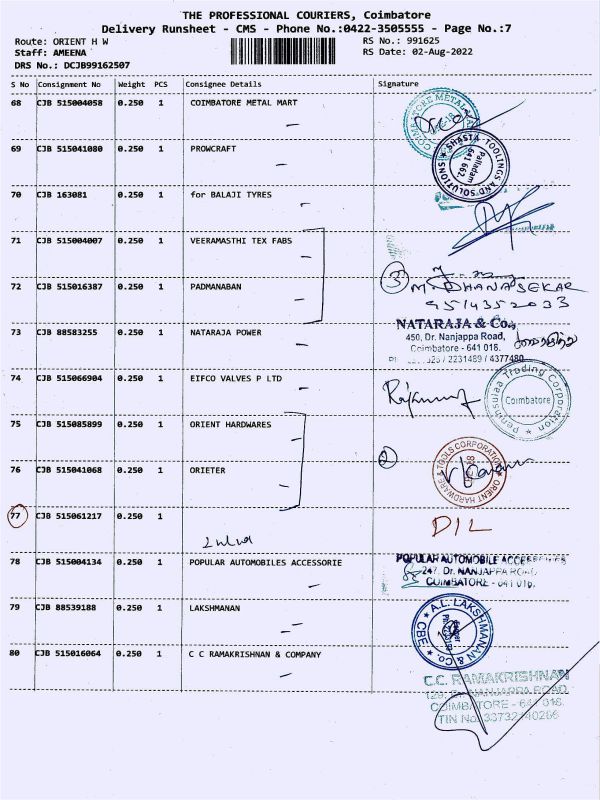 THE PROFESSIONAL COURIERS, Coimbatore
Delivery Runsheet - CMS - Phone No.:0422-3505555 - Page No.:7
Route: ORIENT H W
RS No.: 991625
Staff: AMEENA
RS Date: 02-Aug-2022
DRS No.: DCJB99162507
S No Consignment No Weight PCS Consignee Details Signature
68 CJB 515004058 0.250 1 COIMBATORE METAL MART
COIMBATORE METAL
69 CJB 515041080 0.250 1 PROWCRAFT
SHASTA TOOLINGS AND SOLUTIONS
Palladam
641 662
70 CJB 163081 0.250 1 for BALAJI TYRES
71 CJB 515004007 0.250 1 VEERAMASTHI TEX FABS
72 CJB 515016387 0.250 1 PADMANABAN
3 M. DHANASEKAR
9514352033
73 CJB 88583255 0.250 1 NATARAJA POWER
NATARAJA & Co.,
450, Dr. Nanjappa Road,
Coimbatore - 641 018.
/ 2231489 / 4377480
74 CJB 515066904 0.250 1 EIFCO VALVES P LTD
Peninsulaa Trading Corporation
Coimbatore
75 CJB 515085899 0.250 1 ORIENT HARDWARES
76 CJB 515041068 0.250 1 ORIETER
2
ORIENT HARDWARE & TOOLS CORPORATION
77 CJB 515061217 0.250 1
DIL
78 CJB 515004134 0.250 1 POPULAR AUTOMOBILES ACCESSORIE
POPULAR AUTOMOBILE ACCESSORIES
247, Dr. NANJAPPA ROAD,
COIMBATORE - 641 018.
79 CJB 88539188 0.250 1 LAKSHMANAN
A.L. LAKSHMANAN & Co.
CBE
80 CJB 515016064 0.250 1 C C RAMAKRISHNAN & COMPANY
C.C. RAMAKRISHNAN
NANJAPPA ROAD,
COIMBATORE - 641 018.
TIN No 33732440266